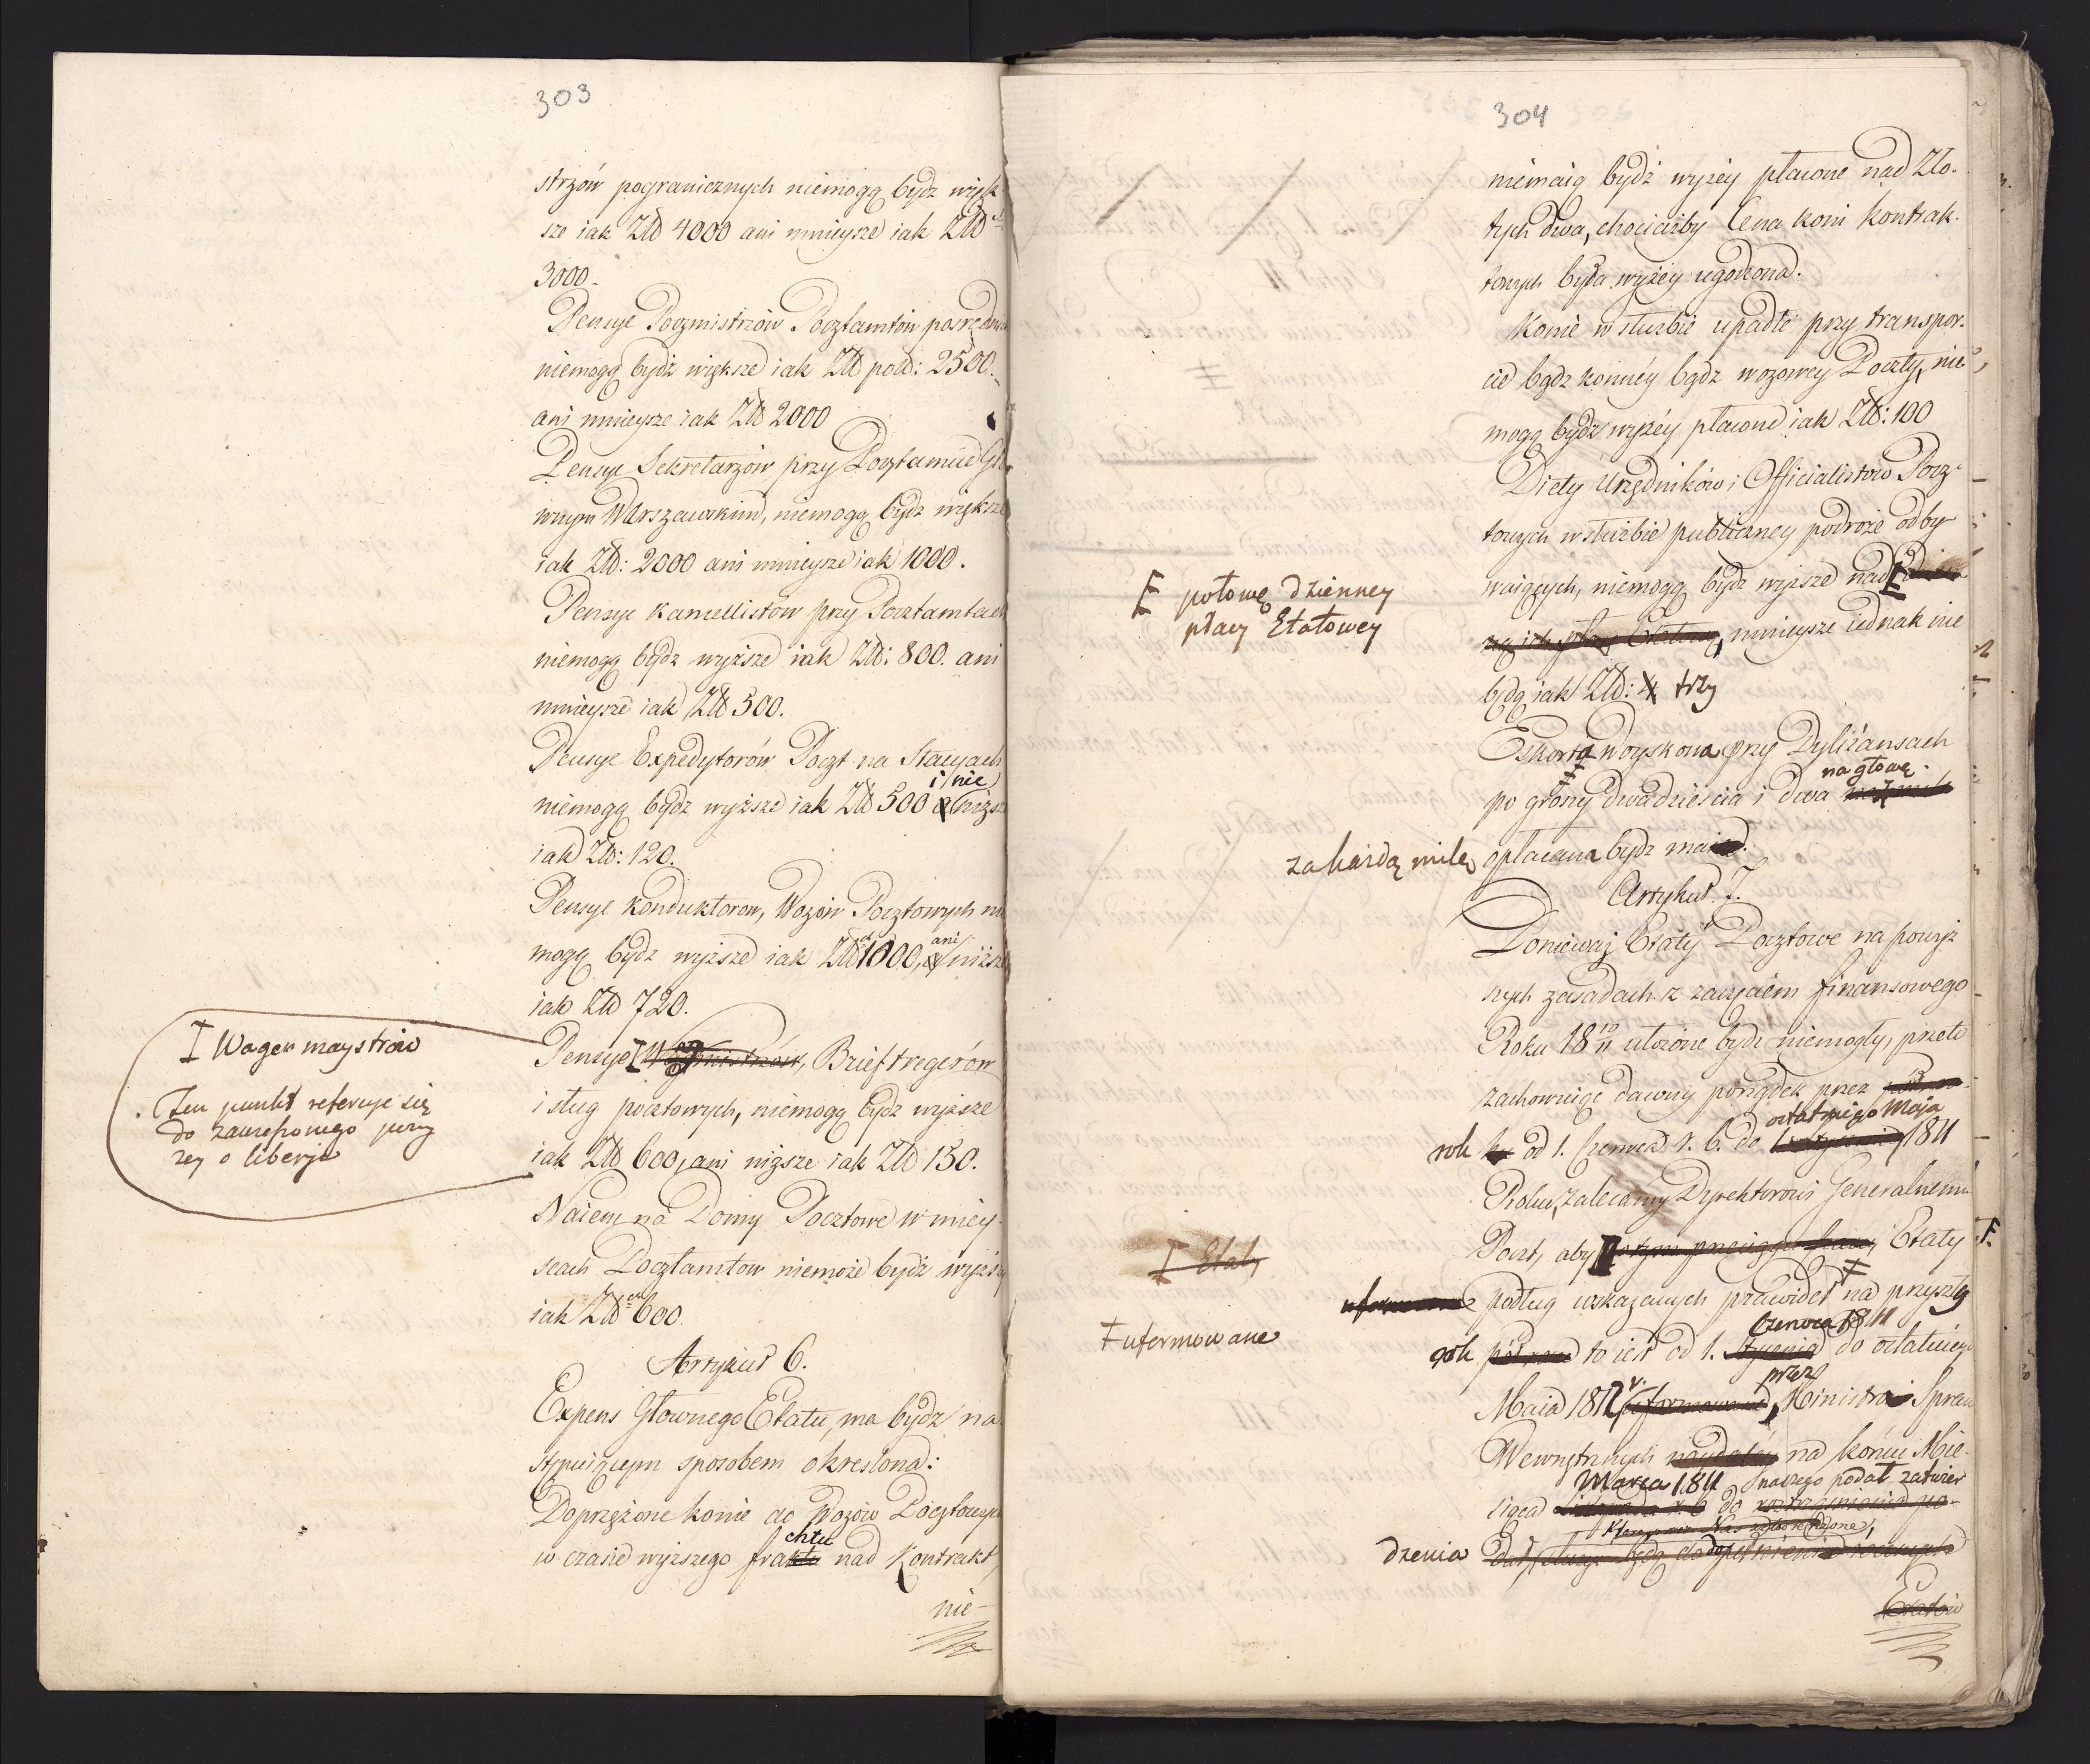 303
strzów pogranicznych niemogą bydz więk
sze iak Złd 4000 ani mnieysze iak Złd
3000.
Pensye Poczmistrzów Pocztamtów posredn
niemogą bydź większe iak Złd pold: 2500.
ani mnieysze iak Złd 2000
Pensye Sekretarzów przy Pocztamcie Gło
wnym Warszawskim, niemogą bydz większe
iak Złd: 2000 ani mnieysze iak 1000.
Pensye Kancellistów przy Pocztamtach
niemogą bydz wyższe iak Złd: 800. ani
mnieysze iak Złd 500.
Pensye Expedytorów Poczt na Stacyach
i nie
niemogą bydz wyższe iak Złd 500 niższe
iak Złd: 120.
Pensye Konduktorow, Wozów Pocztowych nie
ani
mogą bydz wyższe iak Złd 1000, niższe
iak Złd 720.
I Wagenmaystrów
Pensye, Brieftregerów
Ten punkt referuje się
i sług pocztowych, niemogą bydz wyższe
do
o liberje
iak Złd 600, ani niższe iak Złd 150.
Naiem na Domy Pocztowe w miey-
scach Pocztamtow niemoże bydź wyższy
iak Złd 600
Artykuł 6.
Expens Głownego Etatu, ma bydz na
stępuiącym sposobem okreslona:
Doprzężone konie do Wozów Pocztowych
chtu
w czasie wyższego fraktu nad Kontrakt,
nie-
304
niemaią bydź wyżey płacone nad Zło-
tych dwa, chociażby Cena koni kontrak-
towych była wyżey ugodzona.
Konie w służbie upadłe przy transpor-
cie bądz konnéy bądz wozowey Poczty, nie
mogą bydz wyżéy płacone iak Złd: 100
Diety Urzędników i Officialistów Pocz-
towych w służbie publiczney podroże odby-
E połowę dzienney
waiących, niemogą bydz wyższe nad
płacy Etatowey
mnieysze iednak nie
będą iak Złd: 4 trzy
Eskorta Woyskowa przy Dyliżansach
na głowę
po groszy dwadzieścia i dwa
za każdą milę opłacana bydz ma.
Artykuł 7.
Poniewaź Etaty Pocztowe na powyż
szych zasadach z zaczęciem finansowego
Roku 18 10/11 ułożone bydz niemogły, przeto
zachowuiąc dawny porządek przez
ostatniego Maja
rok od 1. Czerwca r. b. do 1811
Roku, zalecamy Dyrektorowi Generalnemu
I Etaty
Poczt, aby Etaty
podług wskazanych prawideł na przyszły
Czerwca 1811
I uformowane
rok to iest od 1. Stycznia do ostatniego
przez
Maia 1812 r. Ministra Spraw
Wewnętrznych na końcu Mie-
Marca 1811 naszego podał zatwier
siąca do
dzenia
Etatów